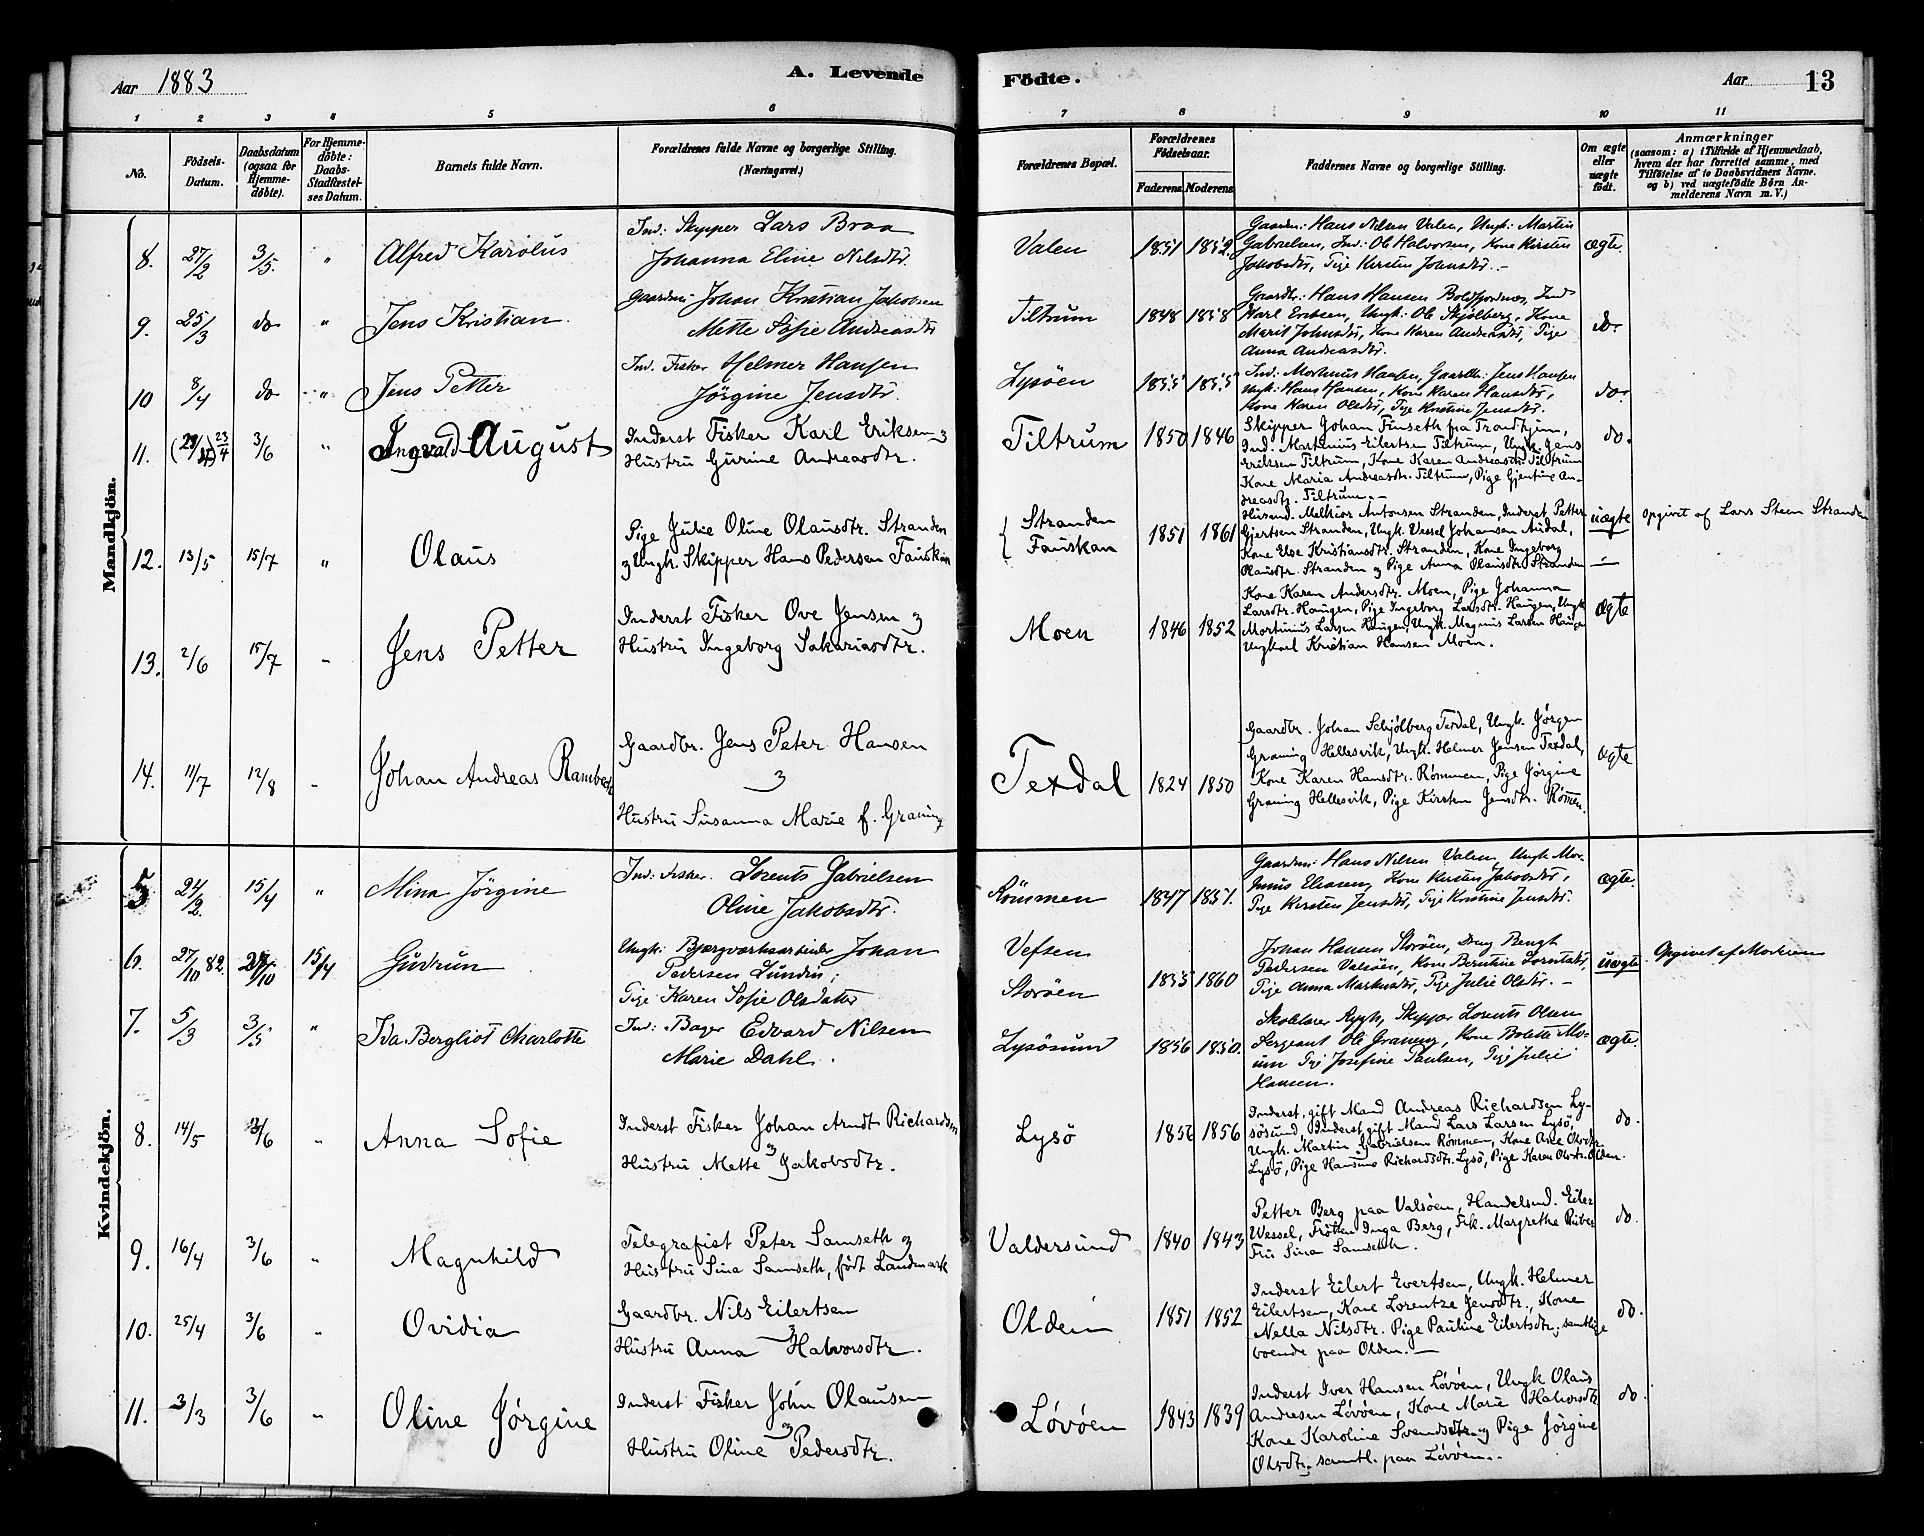 Aar 1883
A. Levende
Födte.
Aar
13
1 2 3 4 5 6 7 8 9 10 11
No.
Födsels-
Datum.
Daabsdatum
(ogsaa for
Hjemme-
döbte).
For Hjemme-
döbte:
Daabs-
Stadfæstel-
ses Datum.
Barnets fulde Navn.
Forældrenes fulde Navne og borgerlige Stilling.
(Næringsvei.)
Forældrenes Bopæl.
Forældrenes
Födselsaar.
Faderens. Moderens.
Faddernes Navne og borgerlige Stilling.
Om ægte
eller
uægte
födt.
Anmærkninger
(saasom: a) i Tilfælde af Hjemmedaab,
hvem der har forrettet samme, med
Tilföielse af to Daabsvidners Navne.
og b) ved uægtefödte Börn An-
melderens Navn m. V.)
Mandkjön.
8. 27/2 3/5. " Alfred Karolus
Ind: Skipper Lars Braa
Johanna Eline Nilsdtr.
Valen 1851 1852.
Gaardm: Hans Nilsen Valen, Ungk: Martin
Gabrielsen, Ind: Ol Halvorsen, Kone Kirsten
Jakobsdtr, Pige Kirsten Johnsdtr. -
ægte.
9. 25/3 do " Jens Kristian.
Gaardm: Johan Kristian Jakobsen
Mette Sofie Andreasdtr
Tiltrum 1848 1858
Gaardbr: Hans Hansen Boldfjordnes, Ind
Karl Eriksen, Ungk: Ole Skjølberg, Kone
Marit Johnsdtr, Kone Karen Andreasdtr, Pige
Anna Andreasdtr.
do.
10 8/4 do " Jens Petter
Ind. Fisker Helmer Hansen
Jörgine Jensdtr.
Lysöen 1855 1855
Ind: Mortinus Hansen, Gaardbr: Jens Hansen
Ungk: Hans Hansen, Kone Karen Hansdtr,
Kone Karen Olsdtr, Pige Kristine Jensdtr.
do.
11. 23/4 3/6 " Ingvald August
Inderst Fisker Karl Eriksen &
Hustru Gurine Andreasdtr.
Tiltrum 1850 1846
Skipper Johan Finseth fra Trondhjem,
Ind. Martinius Eilertsen Tiltrum, Ungk. Jens
Eriksen Tiltrum, Kone Karen Andreasdtr. Tiltrum
Kone Maria Andreasdtr. Tiltrum, Pige Gjertine An-
dreasdtr. Tiltrum. -
do.
12. 13/5 15/7 " Olaus
Pige Julie Oline Olausdtr. Stranden
& Ungk. Skipper Hans Pedersen Fauskan
Stranden
Fauskan
1851 1861
Husmd. Melkior Antonsen Stranden, Inderst Petter
Gjertsen Stranden, Ungk. Vessel Johansen Audal,
Kone Else Kristiansdtr. Stranden, Kone Ingeborg
Olausdtr. Stranden & Pige Anna Olausdtr. Stranden
uægte
opgivet af Lars Steen Stranden
13. 2/6 15/7 - Jens Petter
Inderst Fisker Ove Jensen &
Hustru Ingeborg Sakariasdtr.
Moen 1846 1852
Kone Karen Andersdtr. Moen, Pige Johanna
Larsdtr. Haugen, Pige Ingeborg Larsdtr. Haugen, Ungk
Mortinus Larsen Haugen, Ungk. Magnus Larsen Haugen
Ungkarl Kristian Hansen Moen.
ægte
14. 11/7 12/8 - Johan Andreas Rambech
Gaardbr. Jens Peter Hansen
&
Hustru Susanna Marie f. Graning
Texdal 1824 1850
Gaardbr. Johan Schjölberg Texdal, Ungk. Jörgen
Graning Hellesvik, Ungk. Helmer Jensen Texdal,
Kone Karen Hansdtr. Rømmen, Pige Jörgine
Graning Hellesvik, Pige Kirsten Jensdtr. Rømmen.
ægte
Kvindekjön.
5 24/2. 15/4 " Mina Jörgine
Ind: Fisker. Lorents Gabrielsen
Oline Jakobsdtr.
Römmen 1847 1851.
Gaardm: Hans Nilsen Valen, Ungk Mor-
tinus Eliasen, Kone Kirsten Jakobsdtr,
Pige Kirsten Jensdtr, Pige Kristine Jensdtr.
ægte.
6. 27/10 82. 28/10 15/4 Gudrun
Ungk: Bjergværksarbeider Johan
Pedersen Lundin;
Pige Karen Sofie Olsdatter
Vefsen
Storöen
1855 1860
Johan Hansen Storöen, Dreng Bengt
Pedersen Valsöen, Kone Berntine Lorntsdtr,
Pige Anna Martinsdtr, Pige Julie Olsdtr. -
uægte.
Opgivet af Moderen
7. 5/3 3/5 " Ida Bergliot Charlotte
Ind: Bager Edvard Nilsen
Marie Dahl.
Lysösund 1856 1850.
Skolelærer Rygh, Skipper Lorents Olsen
Sergeant Ole Graning, Kone Bolette Mo-
um Pige Josefine Paulsen, Pige Julie
Hansen.
ægte.
8. 14/5 3/6 - Anna Sofie
Inderst Fisker Johan Arndt Richardsen
&
Hustru Mette Jakobsdtr.
Lysö 1856 1856
Inderst, gift Mand Andreas Richardsen Ly-
sösund, Inderst gift Mand Lars Larsen Lysö,
Ungk. Martin Gabrielsen Rømmen, Kone Ane Olsdtr.
Lysö, Pige Hansine Richardsdtr. Lysö, Pige Karen Olsdtr. Olden.
do.
9. 16/4 3/6 - Magnhild
Telegrafist Peter Samseth &
Hustru Sina Samseth, født Landmark
Valdersund 1840 1843
Petter Berg paa Valsöen, Handelsmd. Eiler
Wessel, Fröken Inga Berg, Frk. Margrethe Riber
Fru Sina Samseth.
do.
10. 25/4 3/6 - Ovidia
Gaardbr. Nils Eilertsen
&
Hustru Anna Halvorsdtr.
Olden 1851 1852
Inderst Eilert Evertsen, Ungk. Helmer
Eilertsen, Kone Lorentze Jensdtr., Kone
Nella Nilsdtr. Pige Pauline Eilertsdtr; samtlige
boende paa Olden. -
do.
11. 3/3 3/6 - Oline Jørgine
Inderst Fisker John Olausen
&
Hustru Oline Pedersdtr.
Lövöen 1843 1839
Inderst Iver Hansen Lövöen, Ungk Olaus
Andresen Lövöen, Kone Marie Halvorsdtr
Kone Karoline Svendsdtr. & Pige Jörgine
Olsdtr. samtl. paa Lövöen.
do.